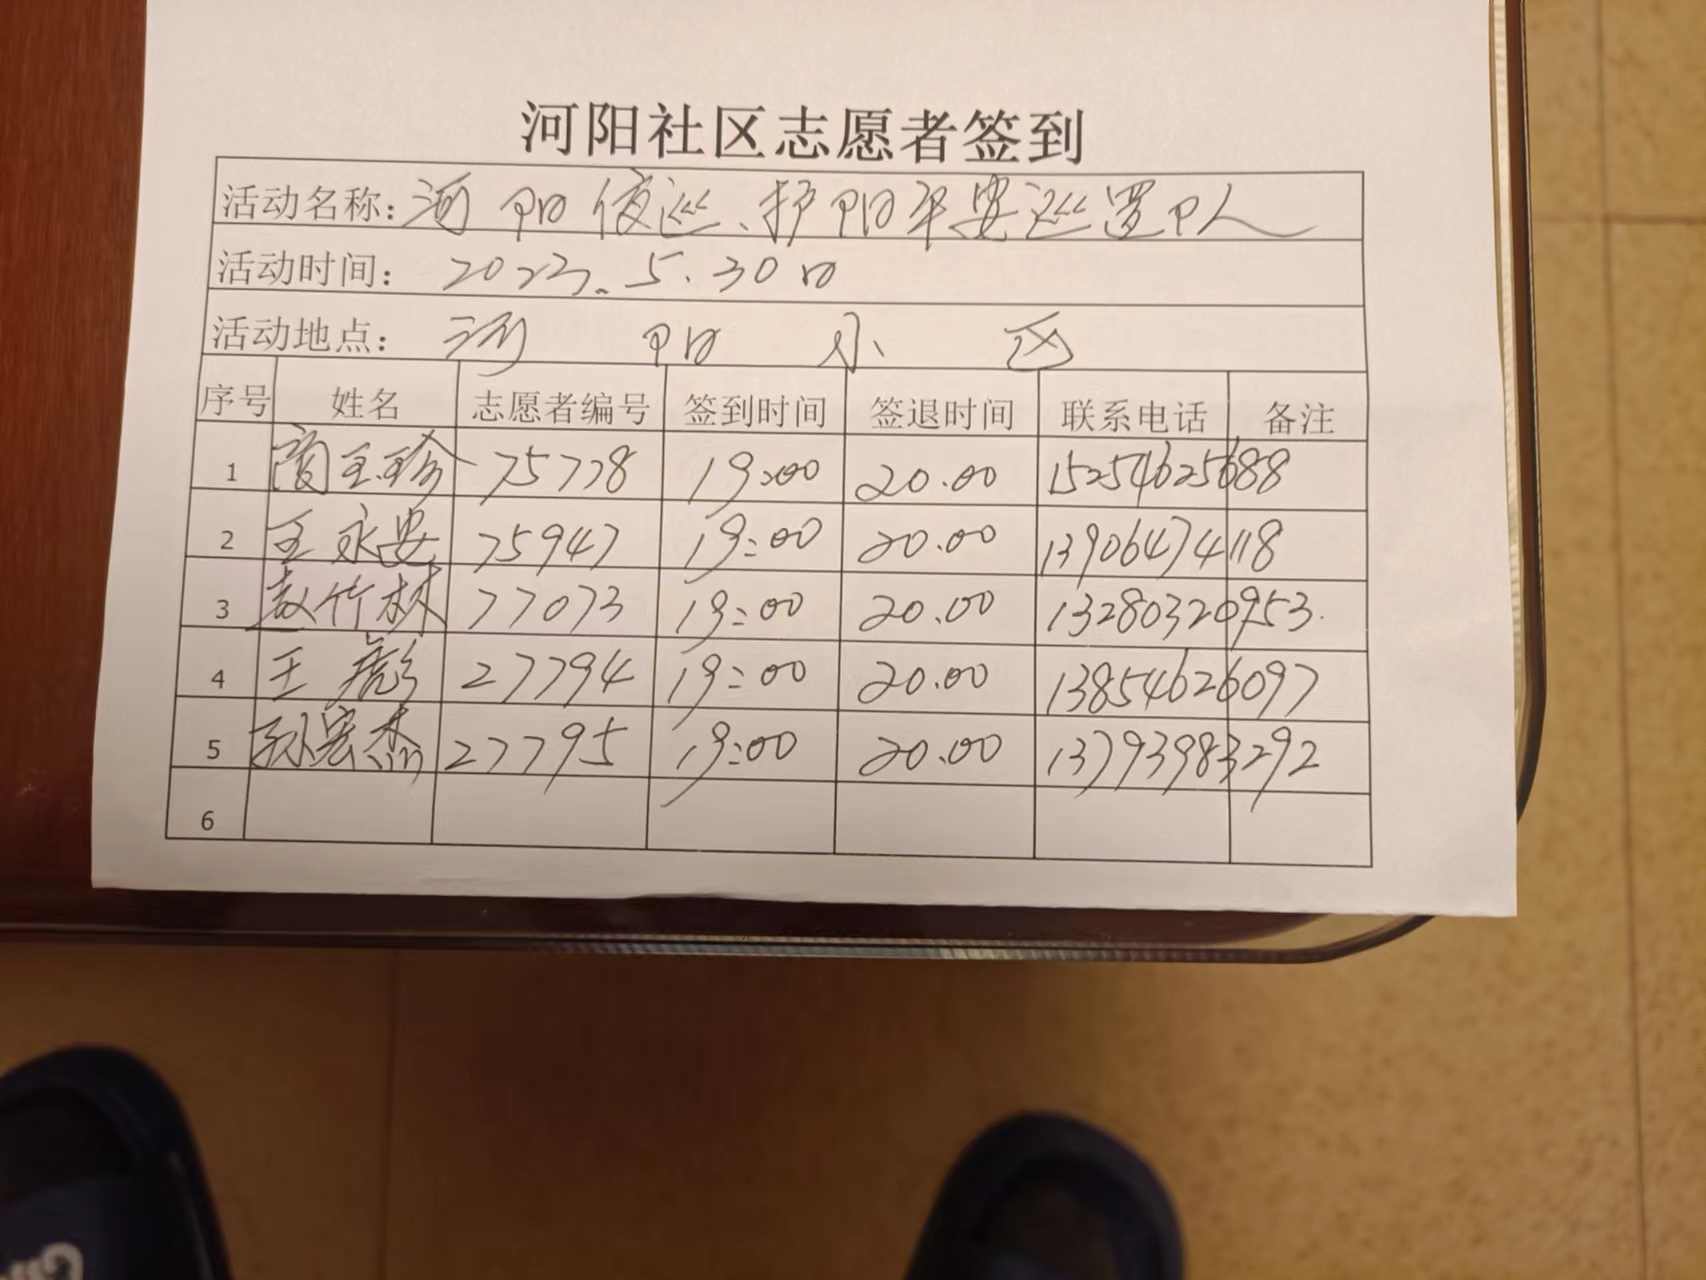 河阳社区志愿者签到
活动名称: 河阳夜巡、护阳平安巡逻
活动时间: 2023.5.30日
活动地点: 河阳小区
序号 姓名 志愿者编号 签到时间 签退时间 联系电话 备注
1 商玉珍 75778 19:00 20.00 15254625688
2 王永安 75947 19:00 20.00 13906474118
3 赵竹林 77073 19:00 20.00 13280320953.
4 王彪 27794 19:00 20.00 13854626097
5 孙宏杰 27795 19:00 20.00 13793983292
6